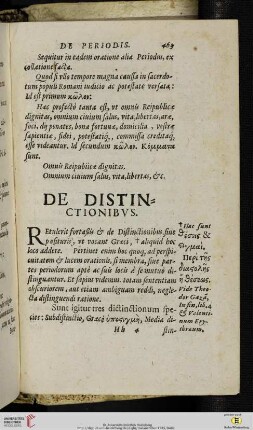 DE PERIODIS. 469
Sequitur in eadem oratione alia Periodus, ex
Quod si vllo tempore magna caussa in sacerdo-
tum populi Romani iudicio ac potestate versata:
Id est primum κῶλον.
Hac profectò tanta est, vt omnis Reipublicæ
dignitas, omnium ciuium salus, vita, libertas, aræ,
foci, dij penates, bona fortunæ, domicilia, vestræ
sapientiæ, fidei, potestatiq́, commissa creditaq́,
esse videantur. Id secundum κῶλον. Κόμματα
sunt.
Omnis Reipublicæ dignitas.
Omnium ciuium salus, vita, libertas, &c.
DE DISTIN-
CTIONIBVS.
REtulerit fortassis & de Distinctionibus siue
posituris, vt vocant Græci, † aliquid hoc
loco addere. Pertinet enim hoc quoq́, ad perspi-
cuitatem & lucem orationis, si membra, siue par-
tes periodorum aptè ac suis locis à se mutuò di-
stinguantur. Et sæpius videmus totam sententiam
obscuriorem, aut etiam ambiguam reddi, neglе-
cta distinguendi ratione.
Sunt igitur tres distinctionum spe-
cies: Subdistinctio, Græcè ὑποστιγμὴ, Media di-
Hh * stin-
† Hæ sunt
θέσεις &
στιγμαί.
Περὶ τῆς
Vide Theo-
dor. Gazā,
In fin. lib. 4
& Valenti-
num Ery-
thræum.